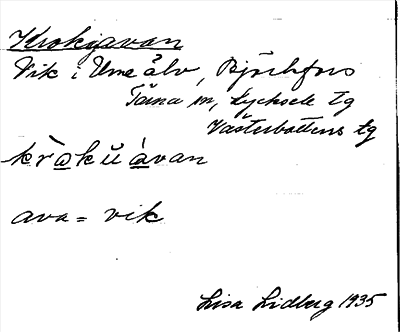 Krokgavan
Vik i Ume älv, Björkfors
Tärna sn, Lycksele tg
Västerbottens tg
ava = vik
Lisa Lidberg 1935